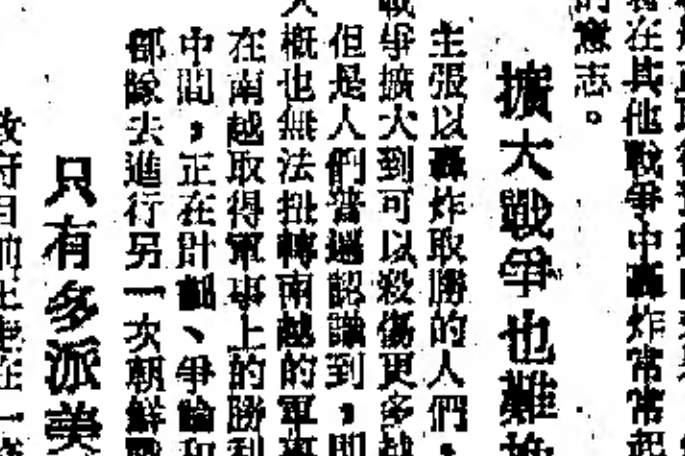 在其他戰爭中轟炸常常起
的意志。
擴大戰爭也難
主張以轟炸取勝的人們，
戰爭擴大到可以殺傷更多越
但是人們普遍認識到，即
大概也無法扭轉南越的軍事
在南越取得軍事上的勝利
中間，正在計劃、爭論和
部隊去進行另一次朝鮮戰
只有多派美
政府目前主要在一